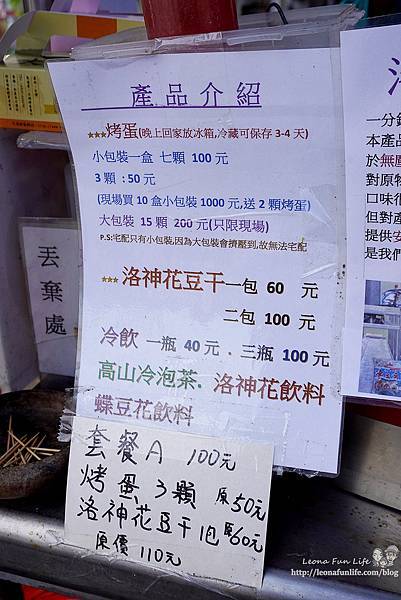 產品介紹
★★★烤蛋(晚上回家放冰箱,冷藏可保存 3-4 天)
小包裝一盒 七顆 100 元
3 顆 : 50 元
(現場買 10 盒小包裝 1000 元,送 2 顆烤蛋)
大包裝 15 顆 200 元(只限現場)
P.S:宅配只有小包裝,因為大包裝會擠壓到,故無法宅配
★★★ 洛神花豆干一包 60 元
二包 100 元
冷飲 一瓶 40 元 . 三瓶 100 元
高山冷泡茶. 洛神花飲料
蝶豆花飲料
套餐A 100元
烤蛋 3顆 原50元
洛神花豆干1包 原60元
原價 110元
丟棄處
一分
本產品
於無
對原物
口味很
但對產
提供安
是我們
Leona Fun Life
http://leonafunlife.com/blog